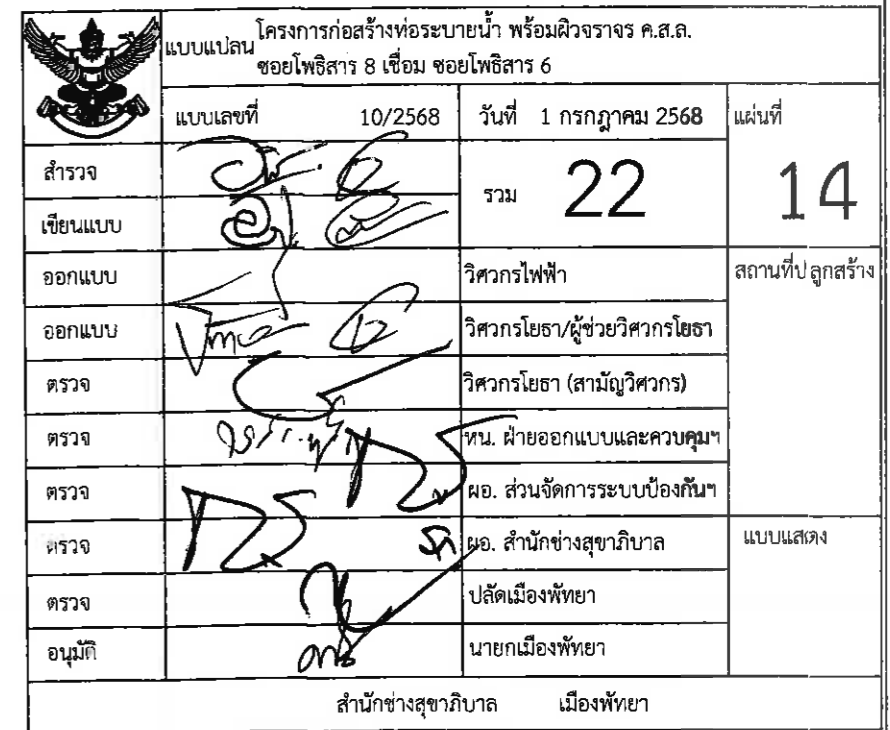 แบบแปลน โครงการก่อสร้างท่อระบายน้ำ พร้อมผิวจราจร ค.ส.ล.
ซอยโพธิสาร 8 เชื่อม ซอยโพธิสาร 6
แบบเลขที่ 10/2568 วันที่ 1 กรกฎาคม 2568 แผ่นที่
สำรวจ รวม 22 14
เขียนแบบ
ออกแบบ วิศวกรไฟฟ้า สถานที่ปลูกสร้าง
ออกแบบ วิศวกรโยธา/ผู้ช่วยวิศวกรโยธา
ตรวจ วิศวกรโยธา (สามัญวิศวกร)
ตรวจ หน. ฝ่ายออกแบบและควบคุมฯ
ตรวจ ผอ. ส่วนจัดการระบบป้องกันฯ
ตรวจ ผอ. สำนักช่างสุขาภิบาล แบบแสดง
ตรวจ ปลัดเมืองพัทยา
อนุมัติ นายกเมืองพัทยา
สำนักช่างสุขาภิบาล เมืองพัทยา